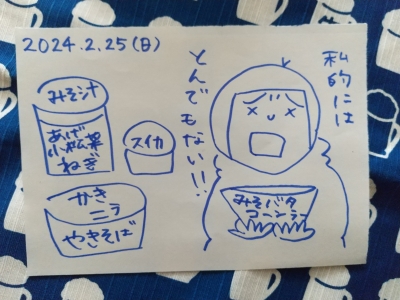 2024.2.25(日)
私的には
とんでもない!!
みそ汁
あげ
小松菜
ねぎ
スイカ
かき
ニラ
やきそば
みそバタ
コーンラー